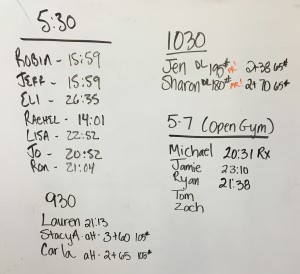 5:30
ROBIN - 15:59
JEFF - 15:59
ELI - 26:35
RACHEL - 14:01
LISA - 22:52
JO - 20:52
Ron - 21:04
930
Lauren 21:13
Stacy A - alt - 3+60 105#
Carla alt - 2+65 105#
1030
Jen DL 195# PR! 2+38 65#
Sharon DL 180# PR! 2+70 65#
5-7 (Open Gym)
Michael 20:31 Rx
Jamie 23:10
Ryan 21:38
Tom
Zach